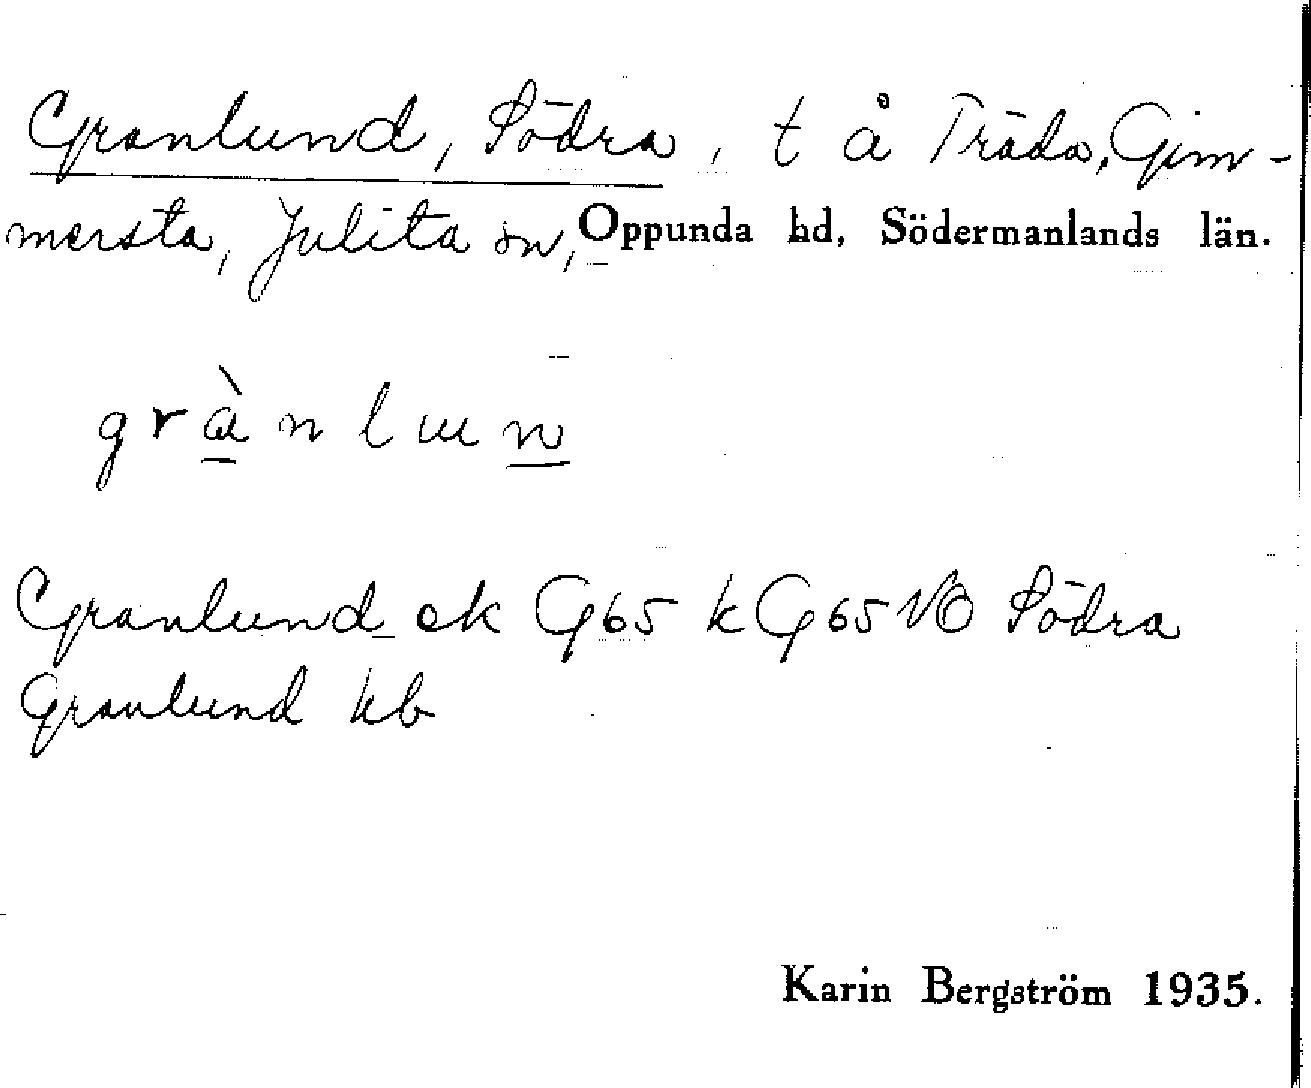 Granlund, Södra, t å Träda, Gim-
mersta, Julita sn, Oppunda hd, Södermanlands län.
grànlun
Granlund ek G65 k G65 VO Södra
Granlund kb
Karin Bergström 1935.